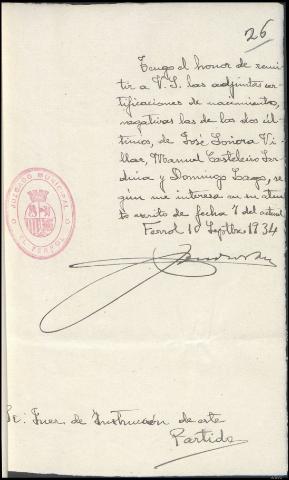 26
Tengo el honor de remi-
tir a V.S. las adjuntas cer-
tificaciones de nacimiento,
negativas las de los dos úl-
timos, de José Loñora Vi-
llar, Manuel Casteleiro Sar-
dina y Domingo Lago, se-
gún me interesa en su aten-
to escrito de fecha 7 del actual.
Ferrol 10 Septbre 1934
JUZGADO MUNICIPAL
EL FERROL
Sr. Juez de Instrucción de este
Partido